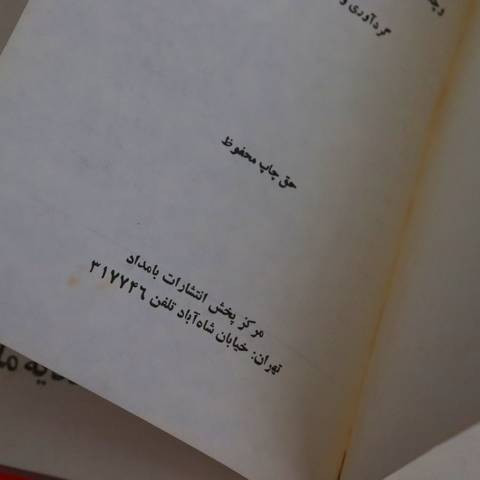 گردآوری و
حق چاپ محفوظ
مرکز پخش انتشارات بامداد
تهران: خیابان شاه‌آباد تلفن ۳۱۷۷۴۶